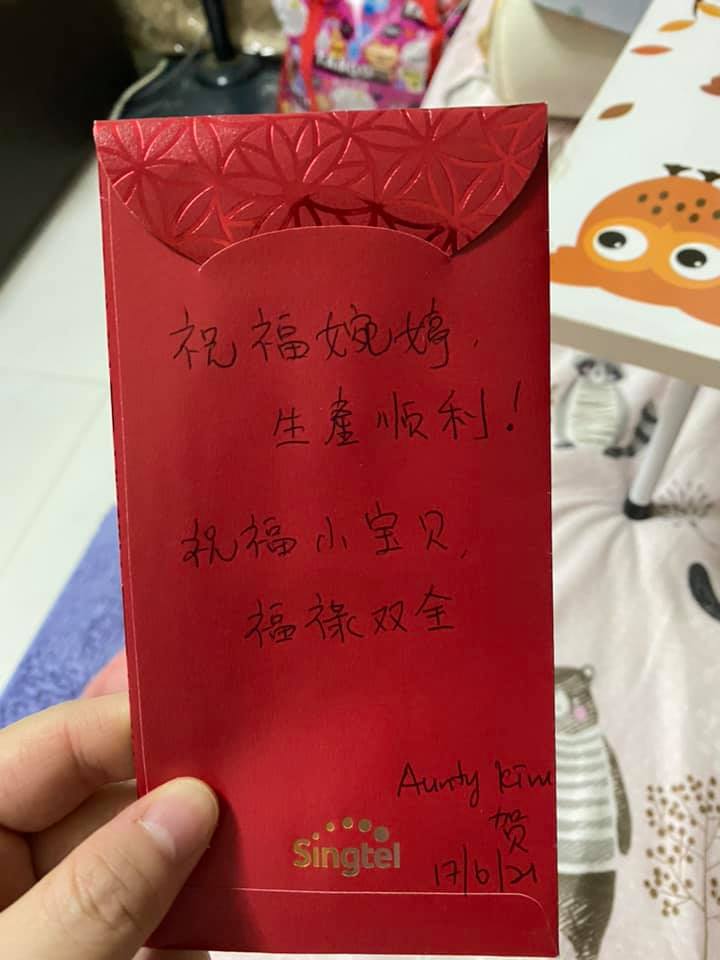 祝福婉婷,
生產顺利!
祝福小宝贝,
福禄双全
Aunty Kim
贺
17/6/21
Singtel